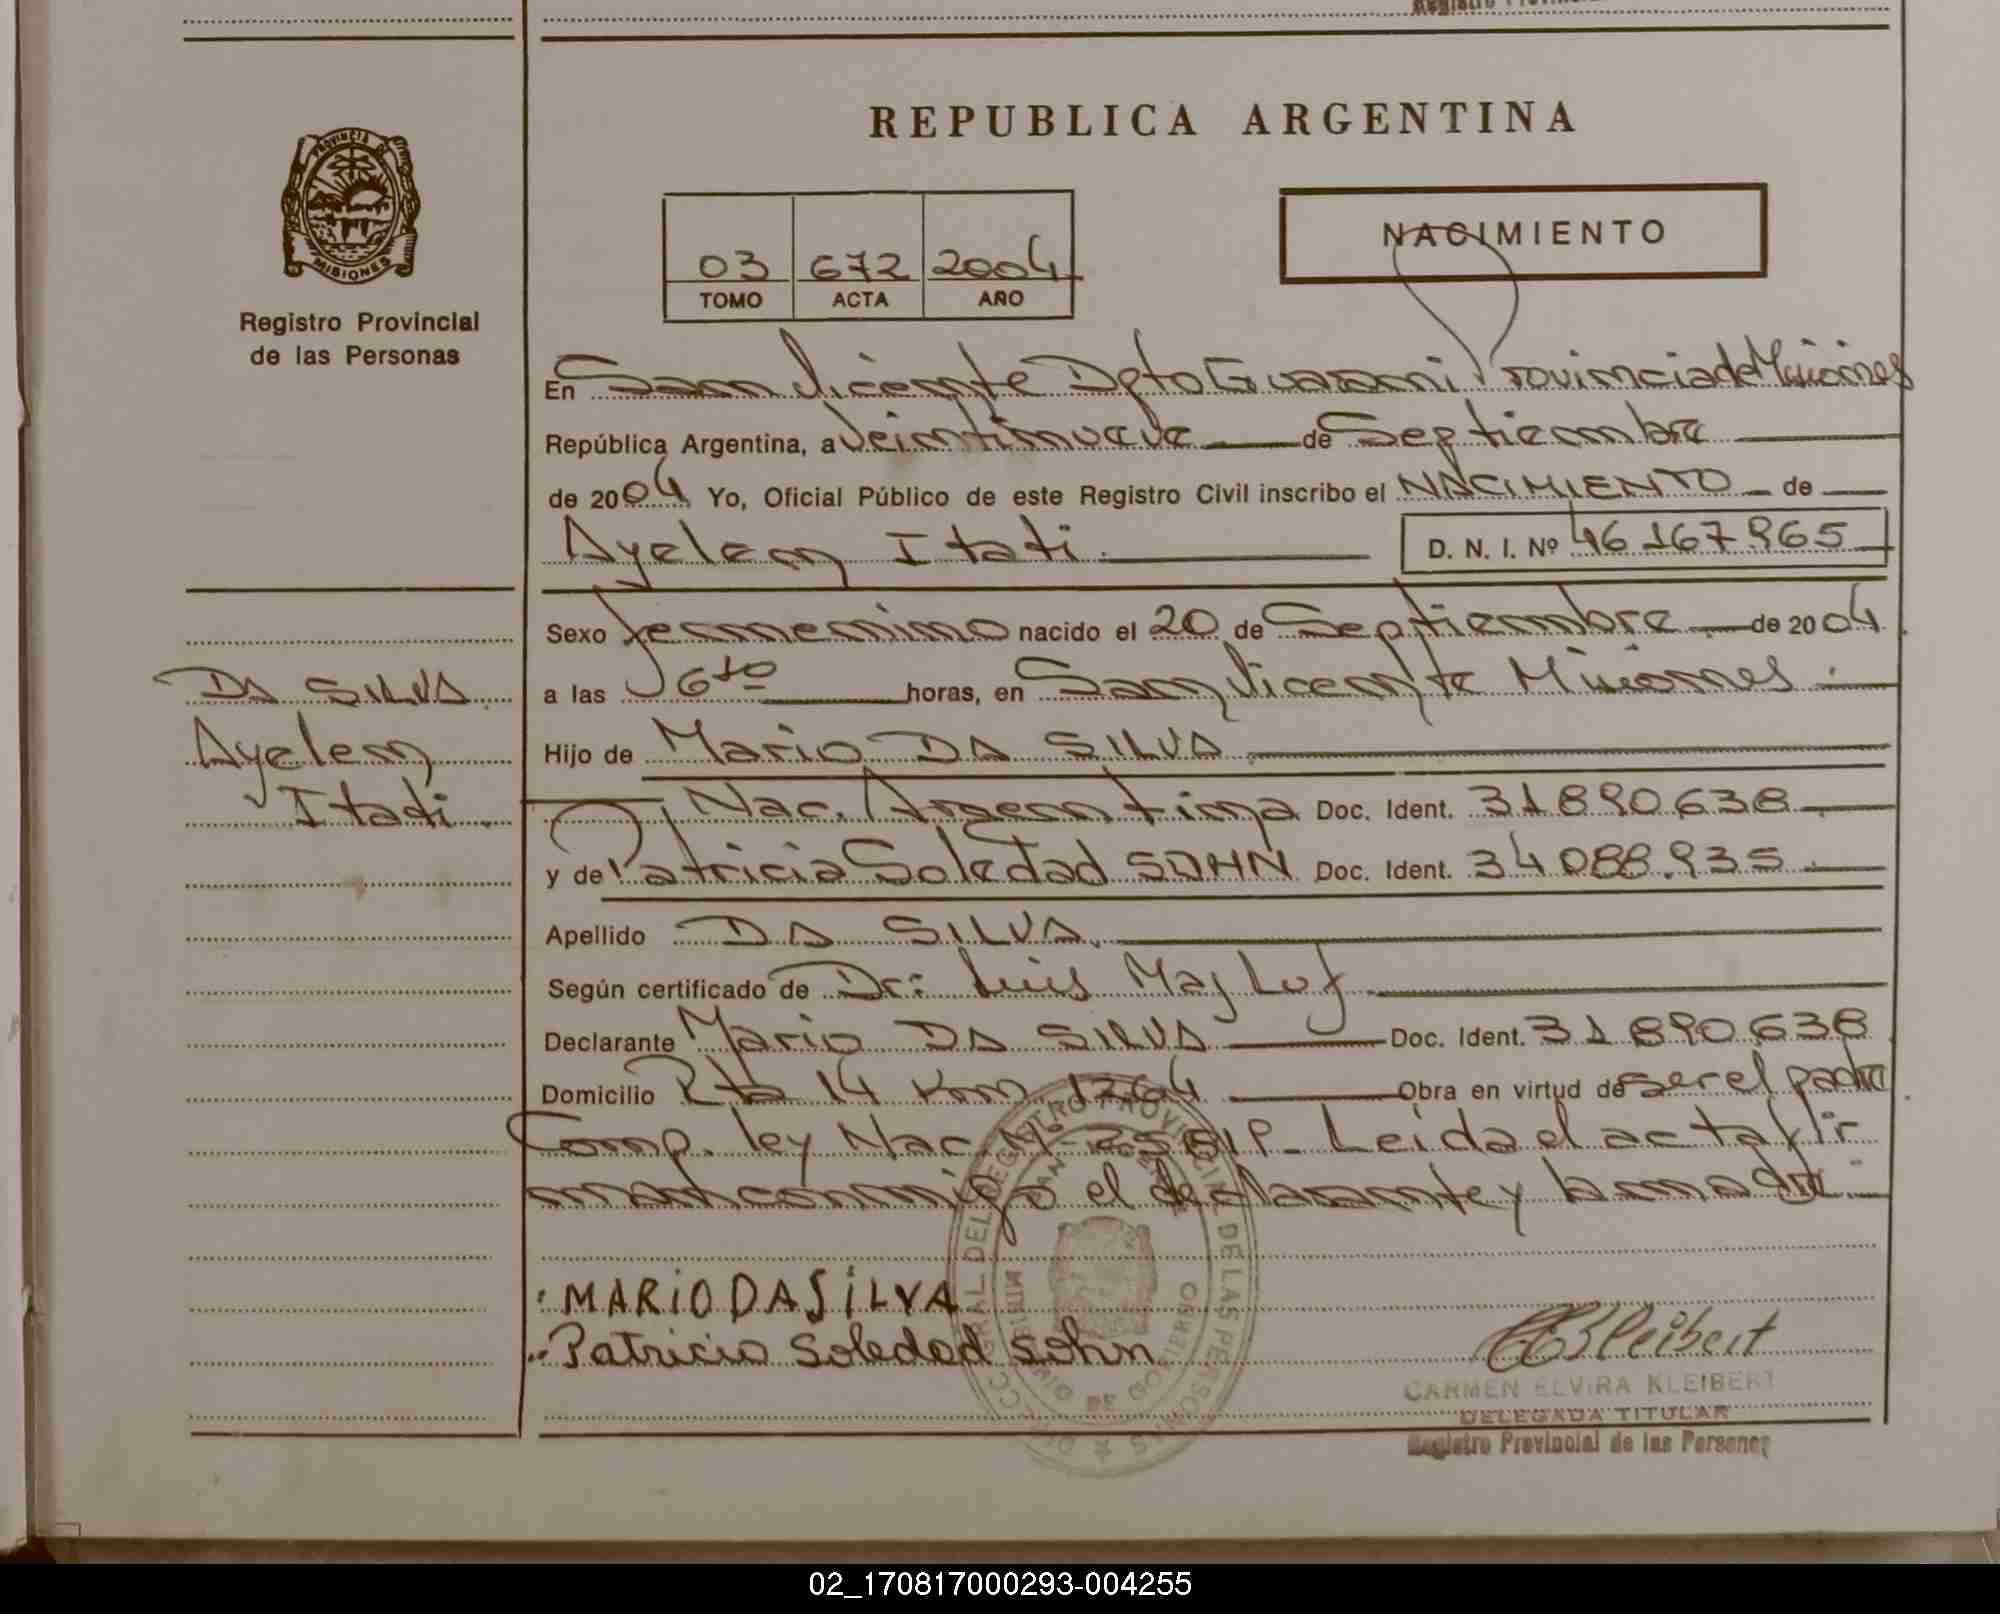 REPUBLICA ARGENTINA
PROVINCIA DE
MISIONES
Registro Provincial
de las Personas
03 672 2004
TOMO ACTA AÑO
NACIMIENTO
En San Vicente Dpto Guarani Provincia de Misiones
República Argentina, a Veintinueve de Septiembre
de 2004 Yo, Oficial Público de este Registro Civil inscribo el NACIMIENTO de
Ayelen Itati. D. N. I. Nº 46.167.965
Sexo femenino nacido el 20 de Septiembre de 2004
a las horas, en San Vicente Misiones
Hijo de Mario DA SILVA
Nac. Argentina Doc. Ident. 31.890.638
y de Patricia Soledad SOHN Doc. Ident. 34.088.935
Apellido DA SILVA
Según certificado de Dr: Luis Majluf
Declarante Mario DA SILVA Doc. Ident. 31.890.638
Domicilio Rta 14 Km 1264 Obra en virtud de ser el padre
Comp. ley Nac. Nº 25819- Leida el acta fir
man conmigo el declarante y la madre
DA SILVA
Ayelen
Itati.
MARiO DA SiLVA
Patricia Soledad Sohn
Kleibert
CARMEN ELVIRA KLEIBERT
DELEGADA TITULAR
Registro Provincial de las Personas
02_170817000293-004255